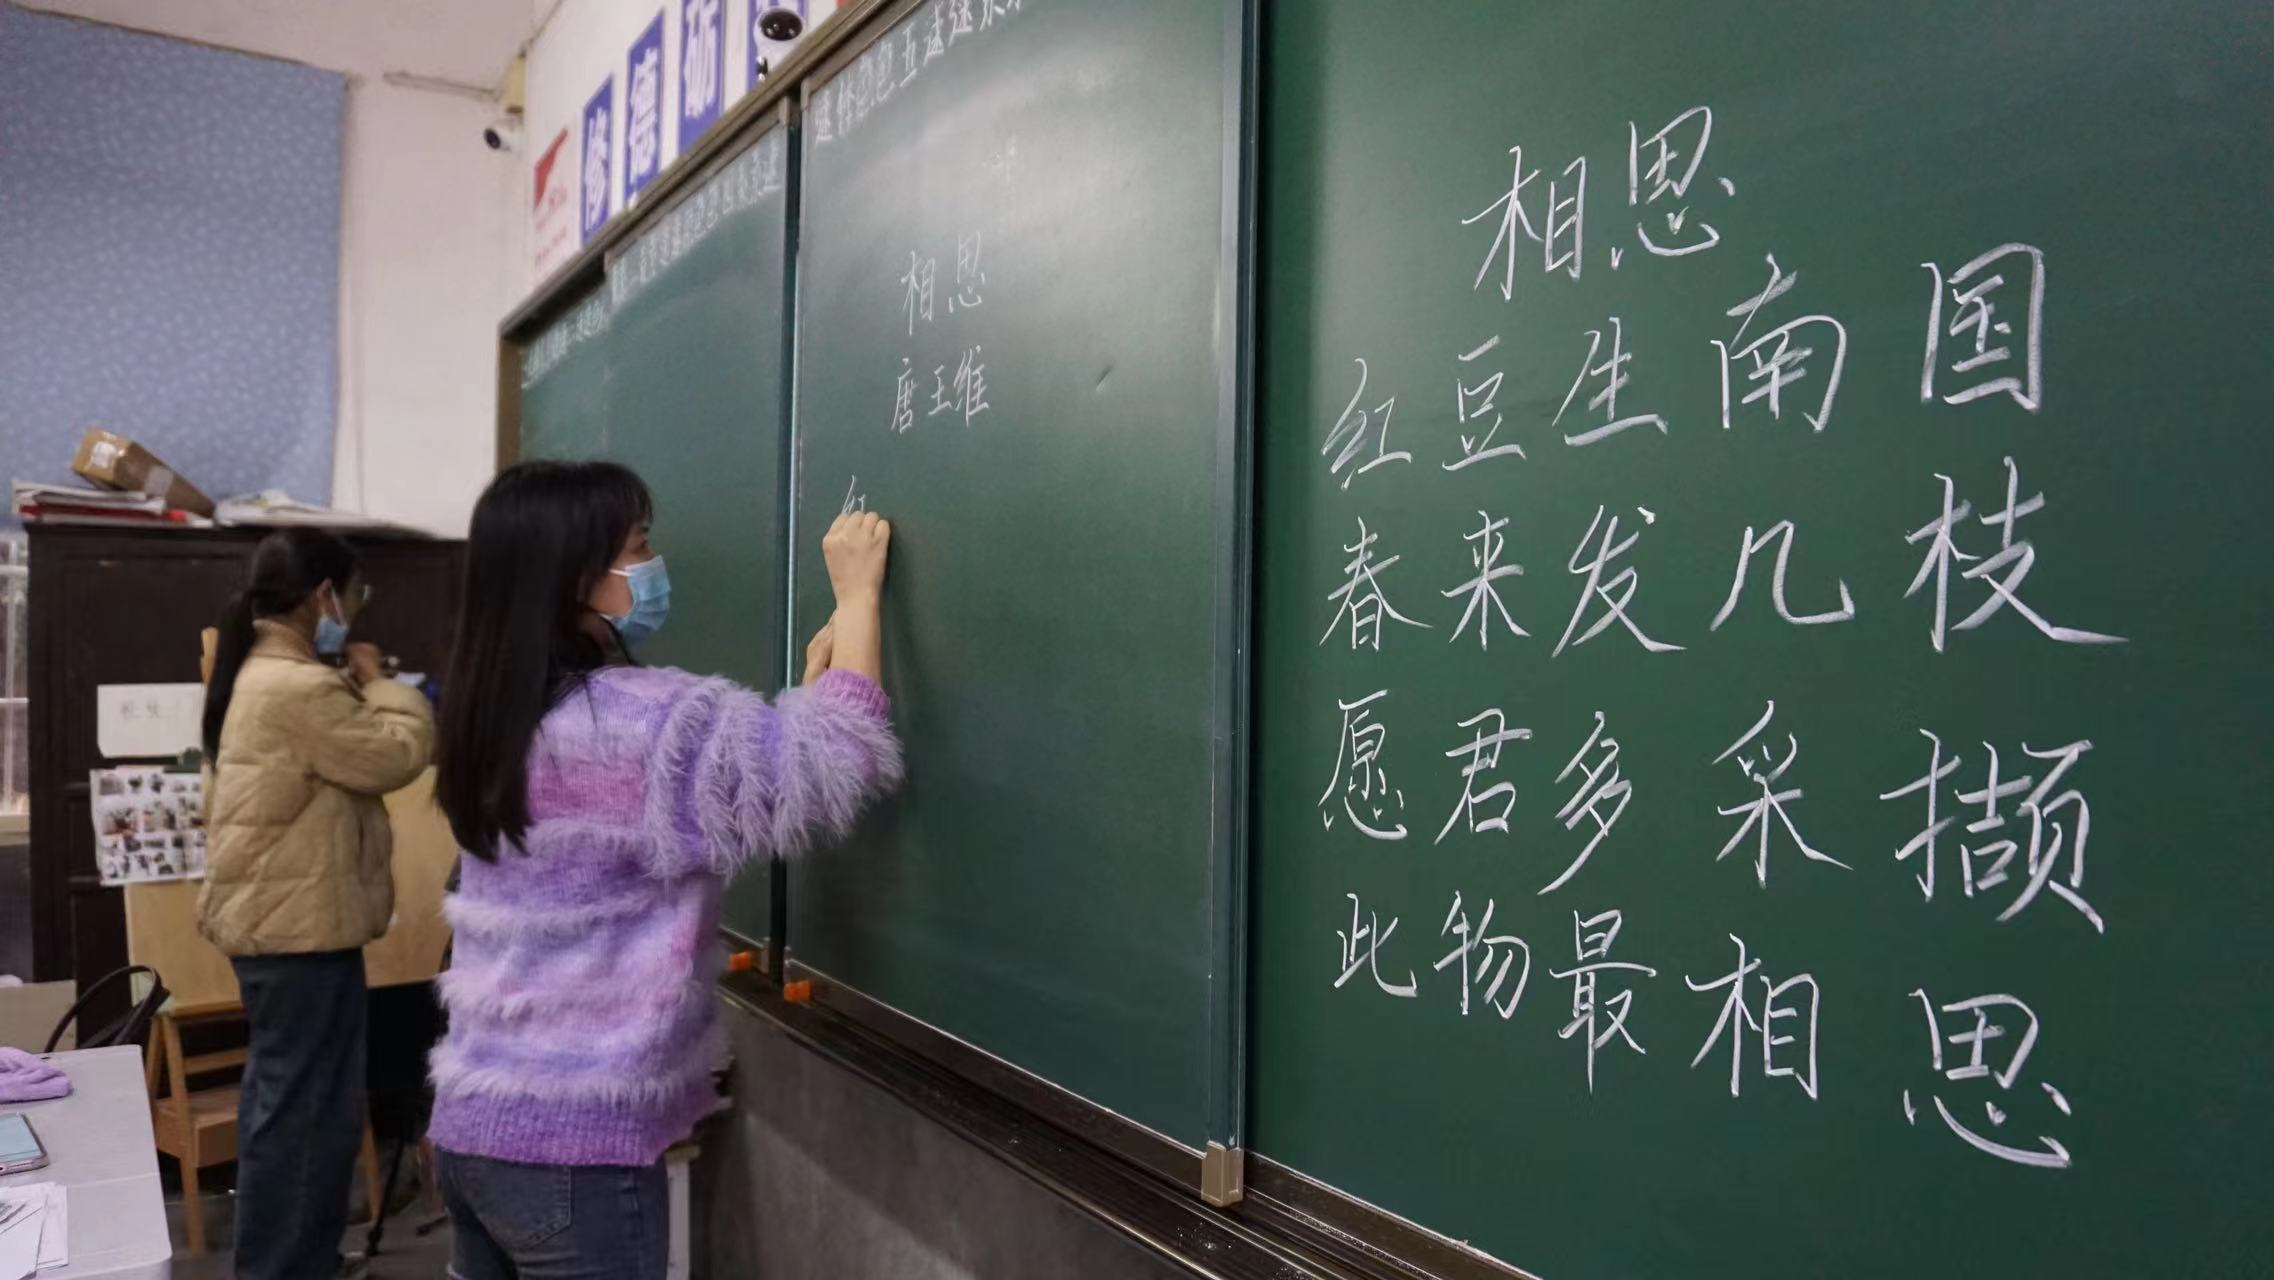 修德砺
相思
唐王维
红
相思
红豆生南国
春来发几枝
愿君多采撷
此物最相思